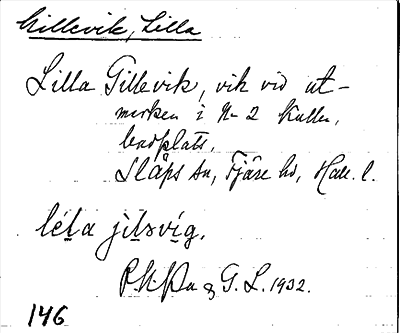 Gillevik, Lilla
Lilla Gillevik, vik vid ut-
marken i No 2 Kullen,
badplats.
Släps sn, Fjäre hd, Hall. l.
lél̠a jil̠svi̠g.
G. L. 1932.
146